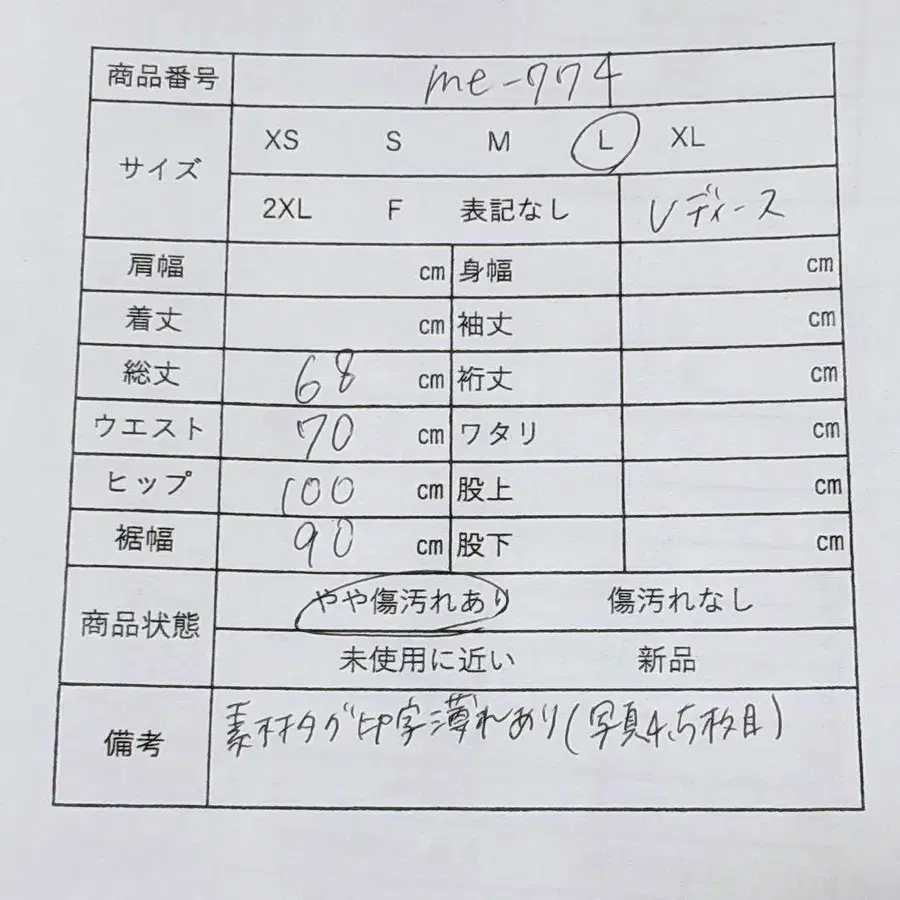 商品番号 me-774
サイズ XS S M L XL
2XL F 表記なし レディース
肩幅 cm 身幅 cm
着丈 cm 袖丈 cm
総丈 68 cm 裄丈 cm
ウエスト 70 cm ワタリ cm
ヒップ 100 cm 股上 cm
裾幅 90 cm 股下 cm
商品状態 やや傷汚れあり 傷汚れなし
未使用に近い 新品
備考 素材タグ印字薄れあり(写真4.5枚目)